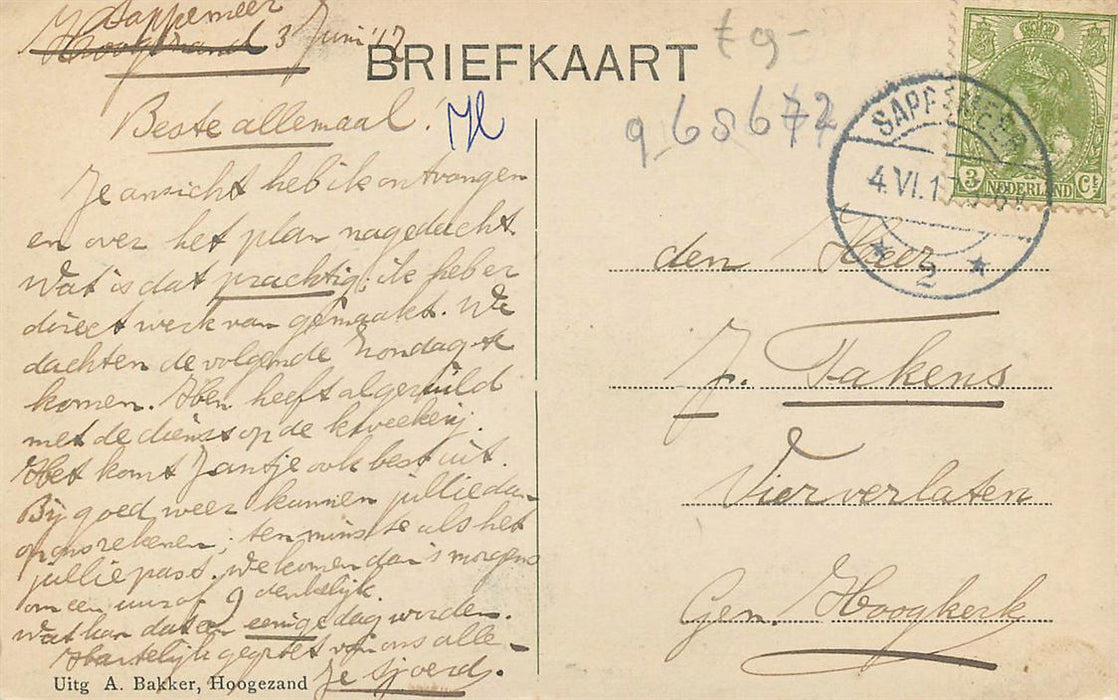 Sappemeer
Hoogezand 3 Juni '17
BRIEFKAART
t 9-
968672
Beste allemaal!
Je ansicht heb ik ontvangen
en over het plan nagedacht.
Wat is dat prachtig; ik heb er
direct werk van gemaakt. We
dachten de volgende Zondag te
komen. Hen heeft al geruild
met de dienst op de kweekerij.
Het komt Jantje ook best uit.
Bij goed weer kunnen jullie dan
op ons rekenen; ten minste als het
jullie past. We komen dan 's morgens
om een uur of 9 denkelijk.
Wat kan dat een eenige dag worden.
Hartelijk gegroet van ons alle.
Je Sjoerd.
SAPPEMEER
4.VI.17
2
3 Ct NEDERLAND
den Heer
J. Takens
Vierverlaten
Gem. Hoogkerk
Uitg A. Bakker, Hoogezand